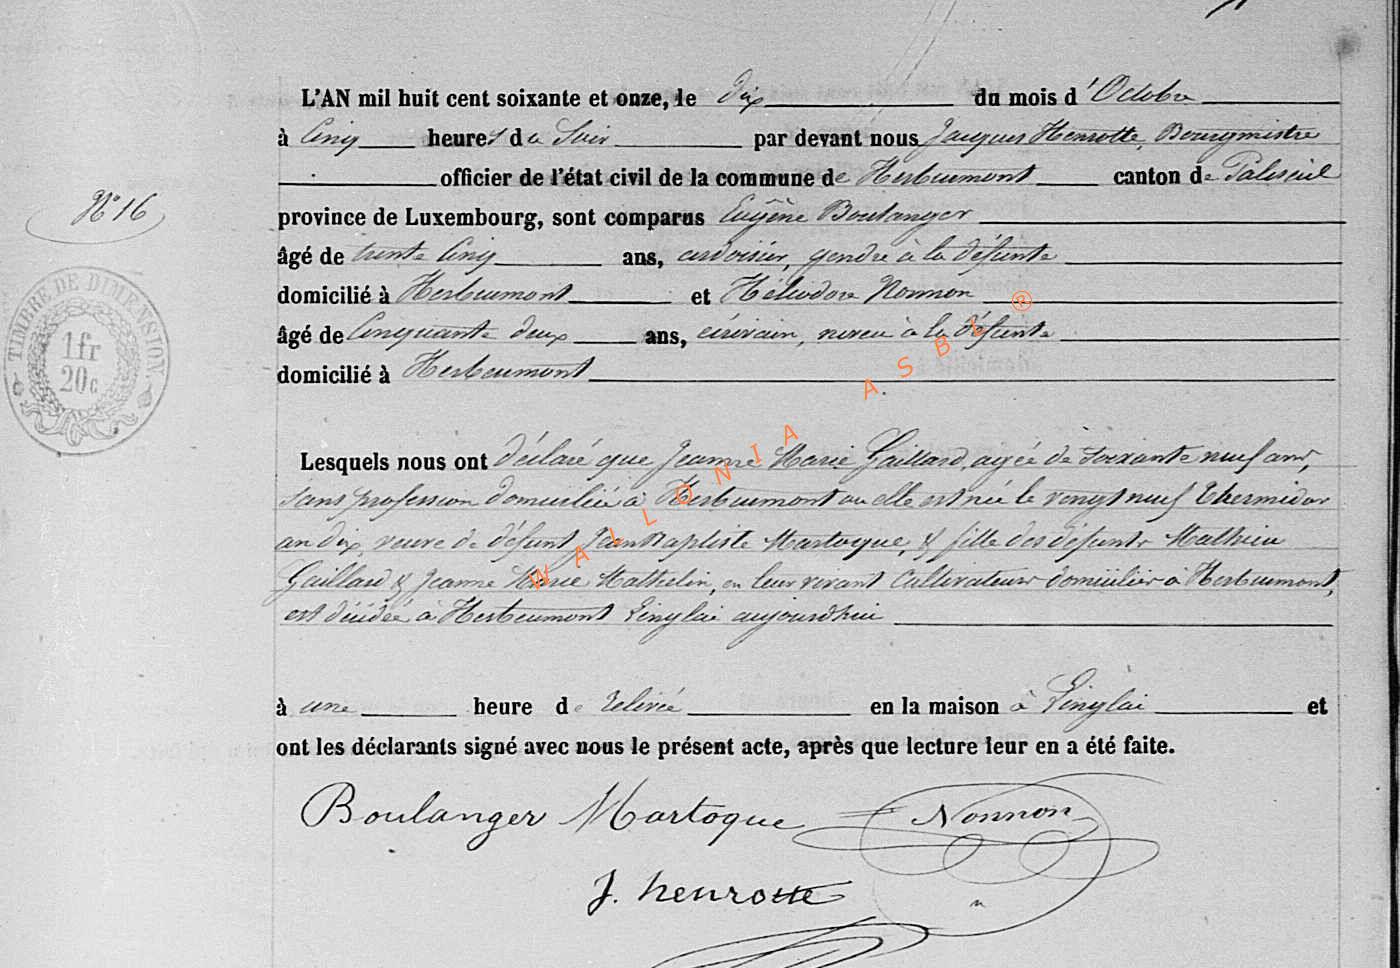 L'AN mil huit cent soixante et onze, le dix du mois d'Octobre
à Cinq heures du Soir par devant nous Jacques Henrotte, Bourgmestre
officier de l'état civil de la commune de Herbeumont canton de Paliseul
N° 16
province de Luxembourg, sont comparus Eugène Boulanger
âgé de trente Cinq ans, ardoisier, gendre à la défunte
TIMBRE DE DIMENSION
1 fr
20 c
domicilié à Herbeumont et Héliodore Nonnon
âgé de Cinquante deux ans, écrivain, neveu à la défunte
domicilié à Herbeumont
WALLONIA ASBL ®
Lesquels nous ont déclaré que Jeanne Marie Gaillard, agée de Soixante neuf ans,
sans profession domiciliée à Herbeumont ou elle est née le vingt neuf Thermidor
an dix, veuve de défunt Jean Baptiste Martoque, & fille des défunts Mathieu
Gaillard & Jeanne Marie Mathelin, en leur vivant Cultivateurs domiciliés à Herbeumont,
est décédée à Herbeumont Linglai aujourdhui
à une heure de relevée en la maison à Linglai et
ont les déclarants signé avec nous le présent acte, après que lecture leur en a été faite.
Boulanger Martoque Nonnon
J. henrotte